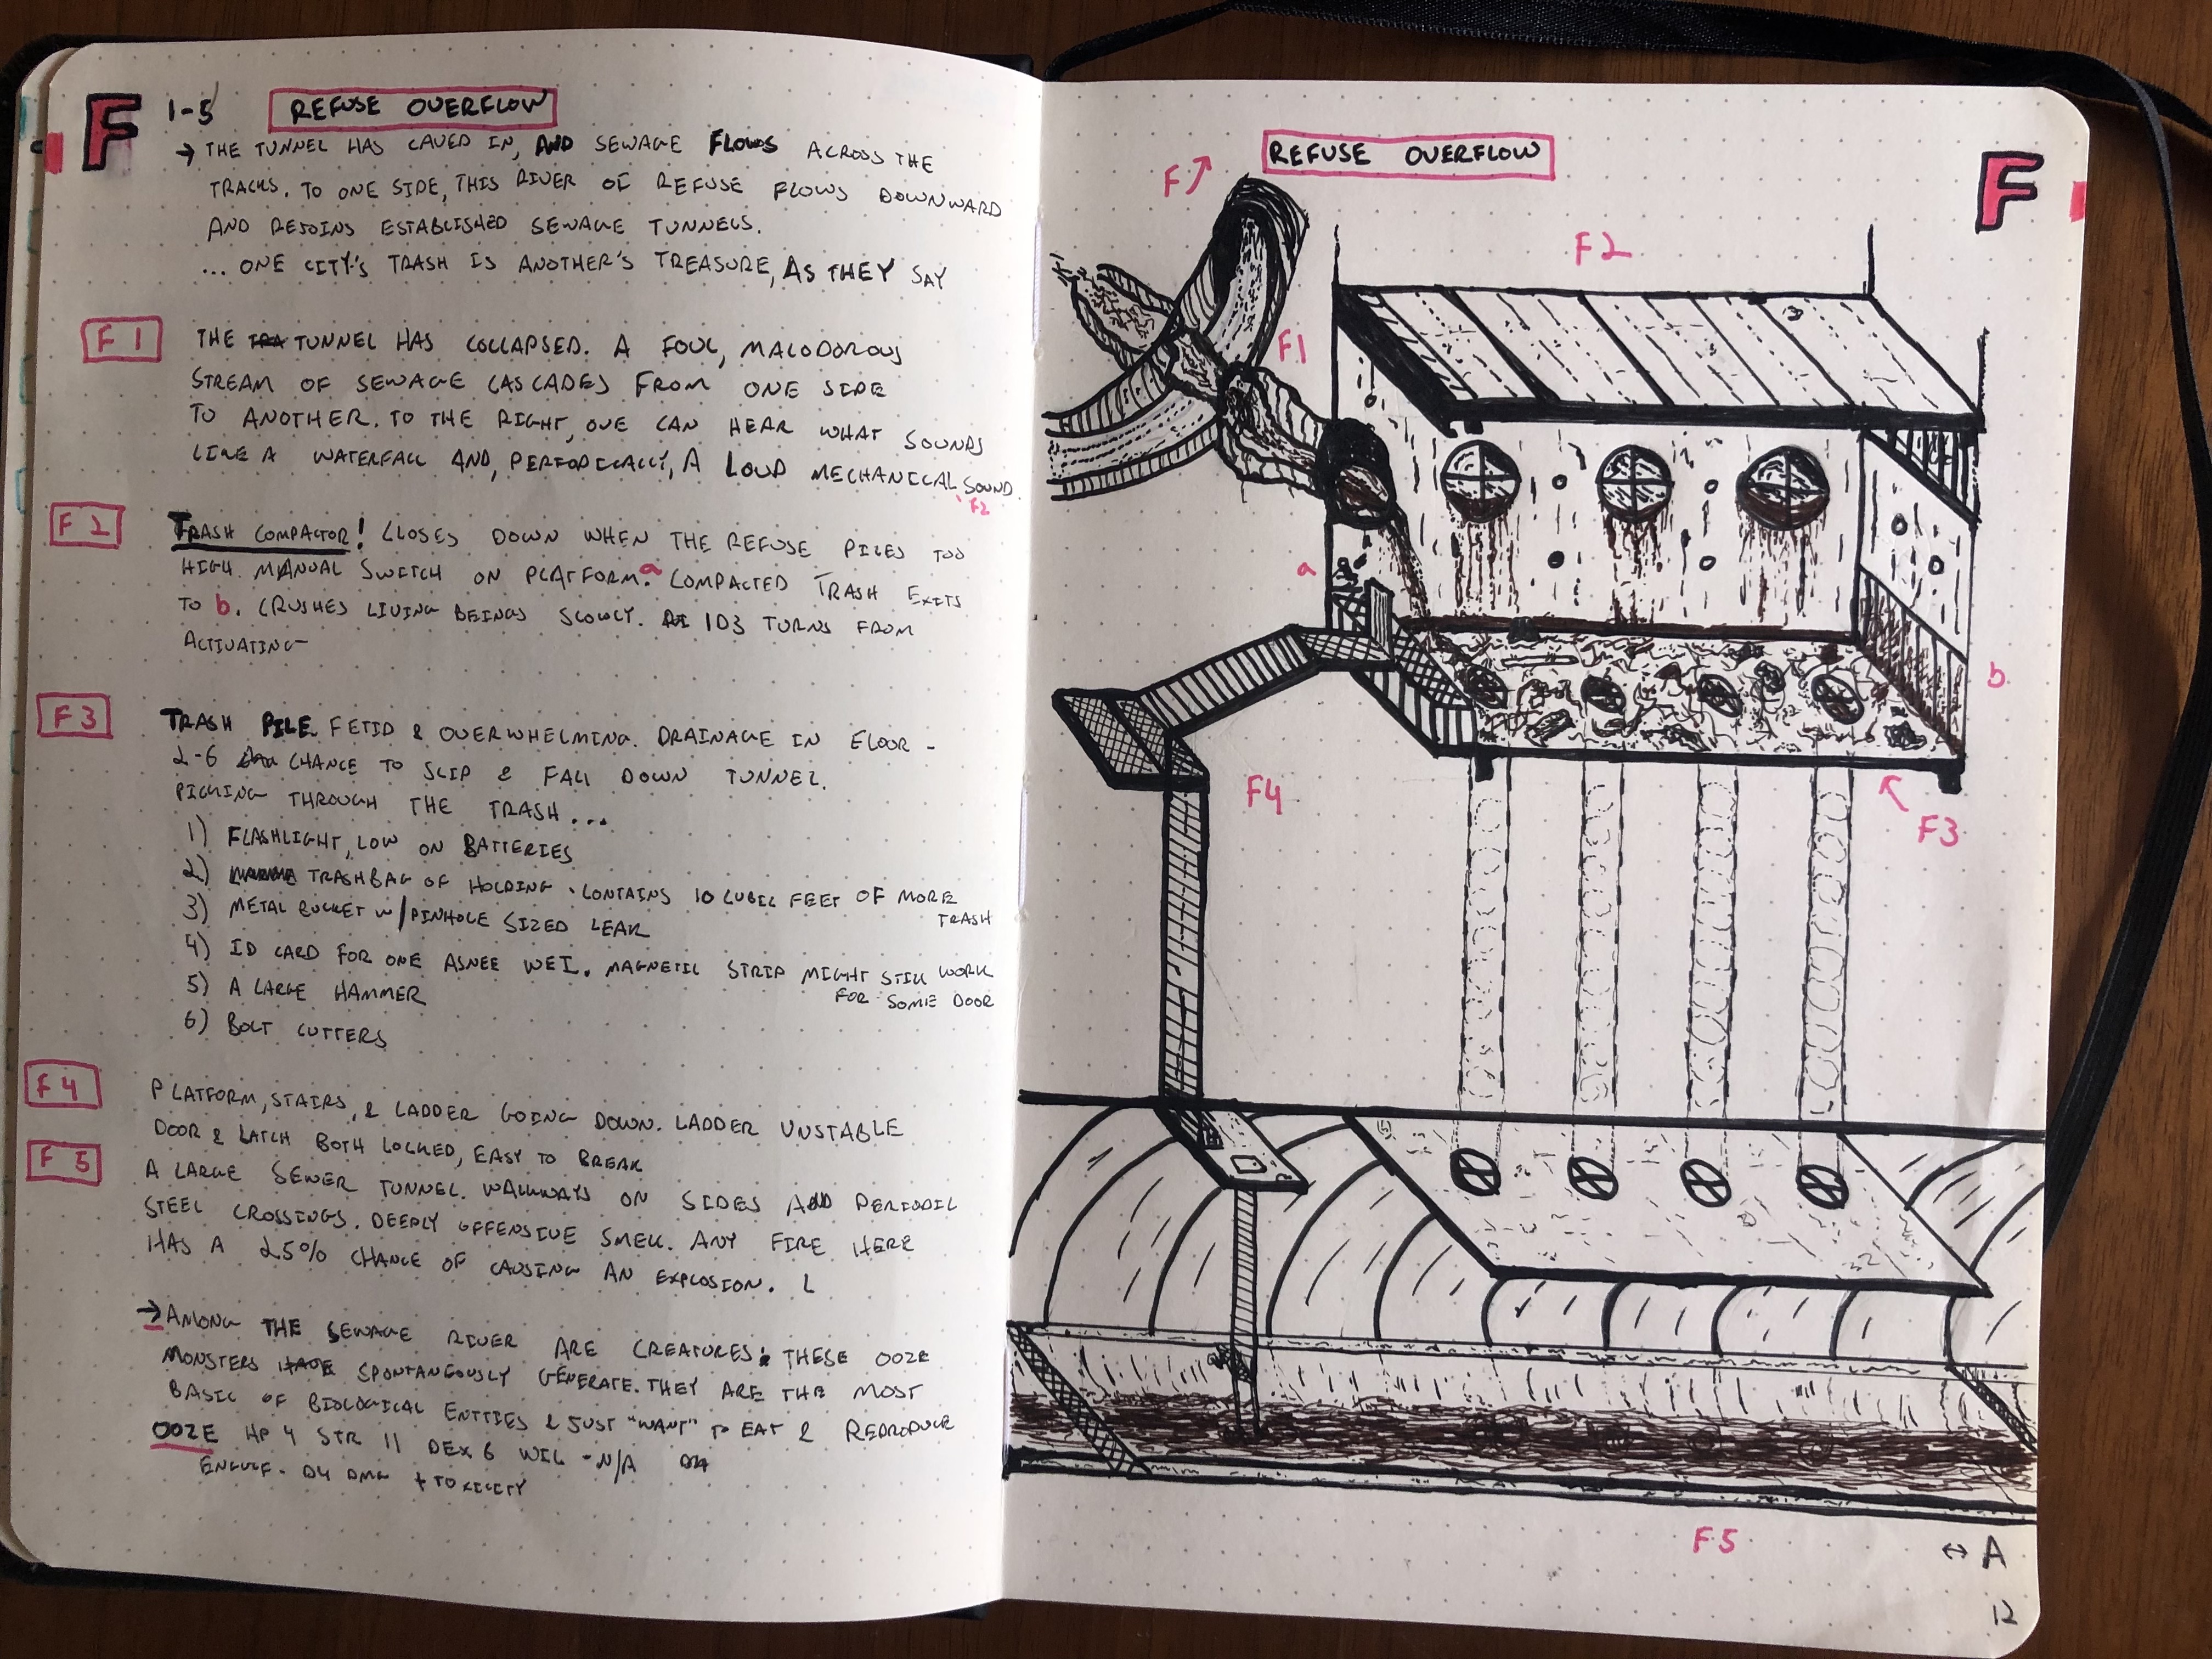 F 1-5 REFUSE OVERFLOW
→ THE TUNNEL HAS CAVED IN, AND SEWAGE FLOWS ACROSS THE
TRACKS. TO ONE SIDE, THIS RIVER OF REFUSE FLOWS DOWNWARD
AND REJOINS ESTABLISHED SEWAGE TUNNELS.
... ONE CITY'S TRASH IS ANOTHER'S TREASURE, AS THEY SAY
F1 THE TUNNEL HAS COLLAPSED. A FOUL, MALODOROUS
STREAM OF SEWAGE CASCADES FROM ONE SIDE
TO ANOTHER. TO THE RIGHT, ONE CAN HEAR WHAT SOUNDS
LIKE A WATERFALL AND, PERIODICALLY, A LOUD MECHANICAL SOUND.
F2
F2 TRASH COMPACTOR! CLOSES DOWN WHEN THE REFUSE PILES TOO
HIGH. MANUAL SWITCH ON PLATFORM. a COMPACTED TRASH EXITS
TO b. CRUSHES LIVING BEINGS SLOWLY. 1D3 TURNS FROM
ACTIVATING
F3 TRASH PILE. FETID & OVERWHELMING. DRAINAGE IN FLOOR -
2-6 CHANCE TO SLIP & FALL DOWN TUNNEL.
PICKING THROUGH THE TRASH...
1) FLASHLIGHT, LOW ON BATTERIES
2) TRASHBAG OF HOLDING. CONTAINS 10 CUBIC FEET OF MORE
TRASH
3) METAL BUCKET W/PINHOLE SIZED LEAK
4) ID CARD FOR ONE ASNEE WEI. MAGNETIC STRIP MIGHT STILL WORK
FOR SOME DOOR
5) A LARGE HAMMER
6) BOLT CUTTERS
F4 PLATFORM, STAIRS, & LADDER GOING DOWN. LADDER UNSTABLE
DOOR & LATCH BOTH LOCKED, EASY TO BREAK
F5 A LARGE SEWER TUNNEL. WALKWAYS ON SIDES AND PERIODIC
STEEL CROSSINGS. DEEPLY OFFENSIVE SMELL. ANY FIRE HERE
HAS A 25% CHANCE OF CAUSING AN EXPLOSION. L
→ AMONG THE SEWAGE RIVER ARE CREATURES: THESE OOZE
MONSTERS SPONTANEOUSLY GENERATE. THEY ARE THE MOST
BASIC OF BIOLOGICAL ENTITIES & JUST "WANT" TO EAT & REPRODUCE
OOZE HP 4 STR 11 DEX 6 WIL - N/A
ENGULF - D4 DMG + TOXICITY
REFUSE OVERFLOW
F
F↗
F2
F1
a
b
F4
F3
F5
↔ A
12